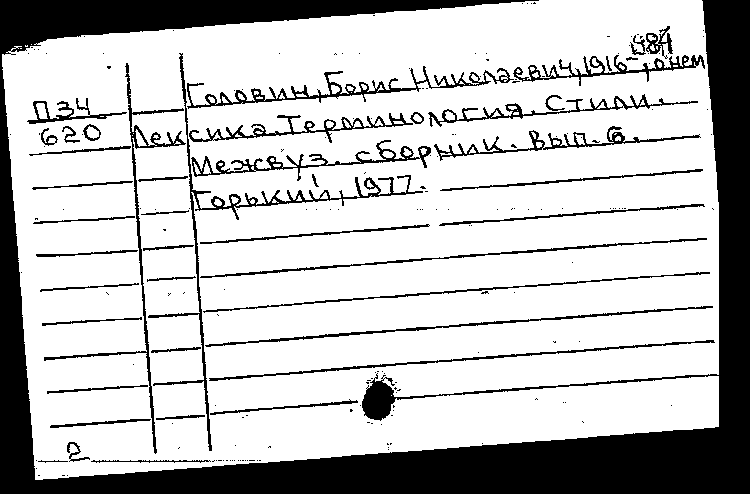 984
Головин, Борис Николаевич, 1916- , о нем
ПЗ4
620 Лексика. Терминология. Стили.
Межвуз. сборник. Вып. 6.
Горький, 1977.